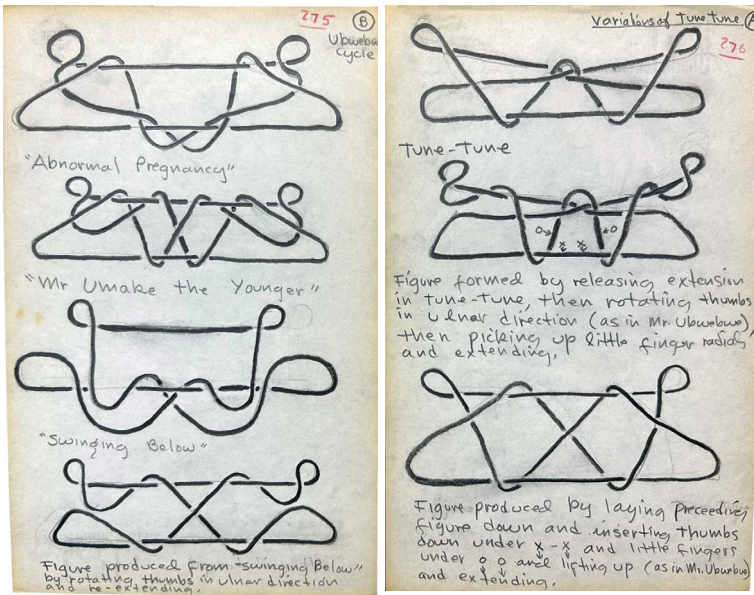 275 B
Ubwebwe
cycle
"Abnormal Pregnancy"
"Mr Umake the Younger"
"Swinging Below"
Figure produced from "swinging Below"
by rotating thumbs in ulnar direction
and re-extending.
Variations of Tune tune
276
Tune-Tune
o o
x x
Figure formed by releasing extension
in tune-tune, then rotating thumbs
in ulnar direction (as in Mr. Ubwebwe),
then picking up little finger radials
and extending.
Figure produced by laying preceeding
figure down and inserting thumbs
down under x-x and little fingers
under o o and lifting up (as in Mr. Ubwebwe)
and extending.